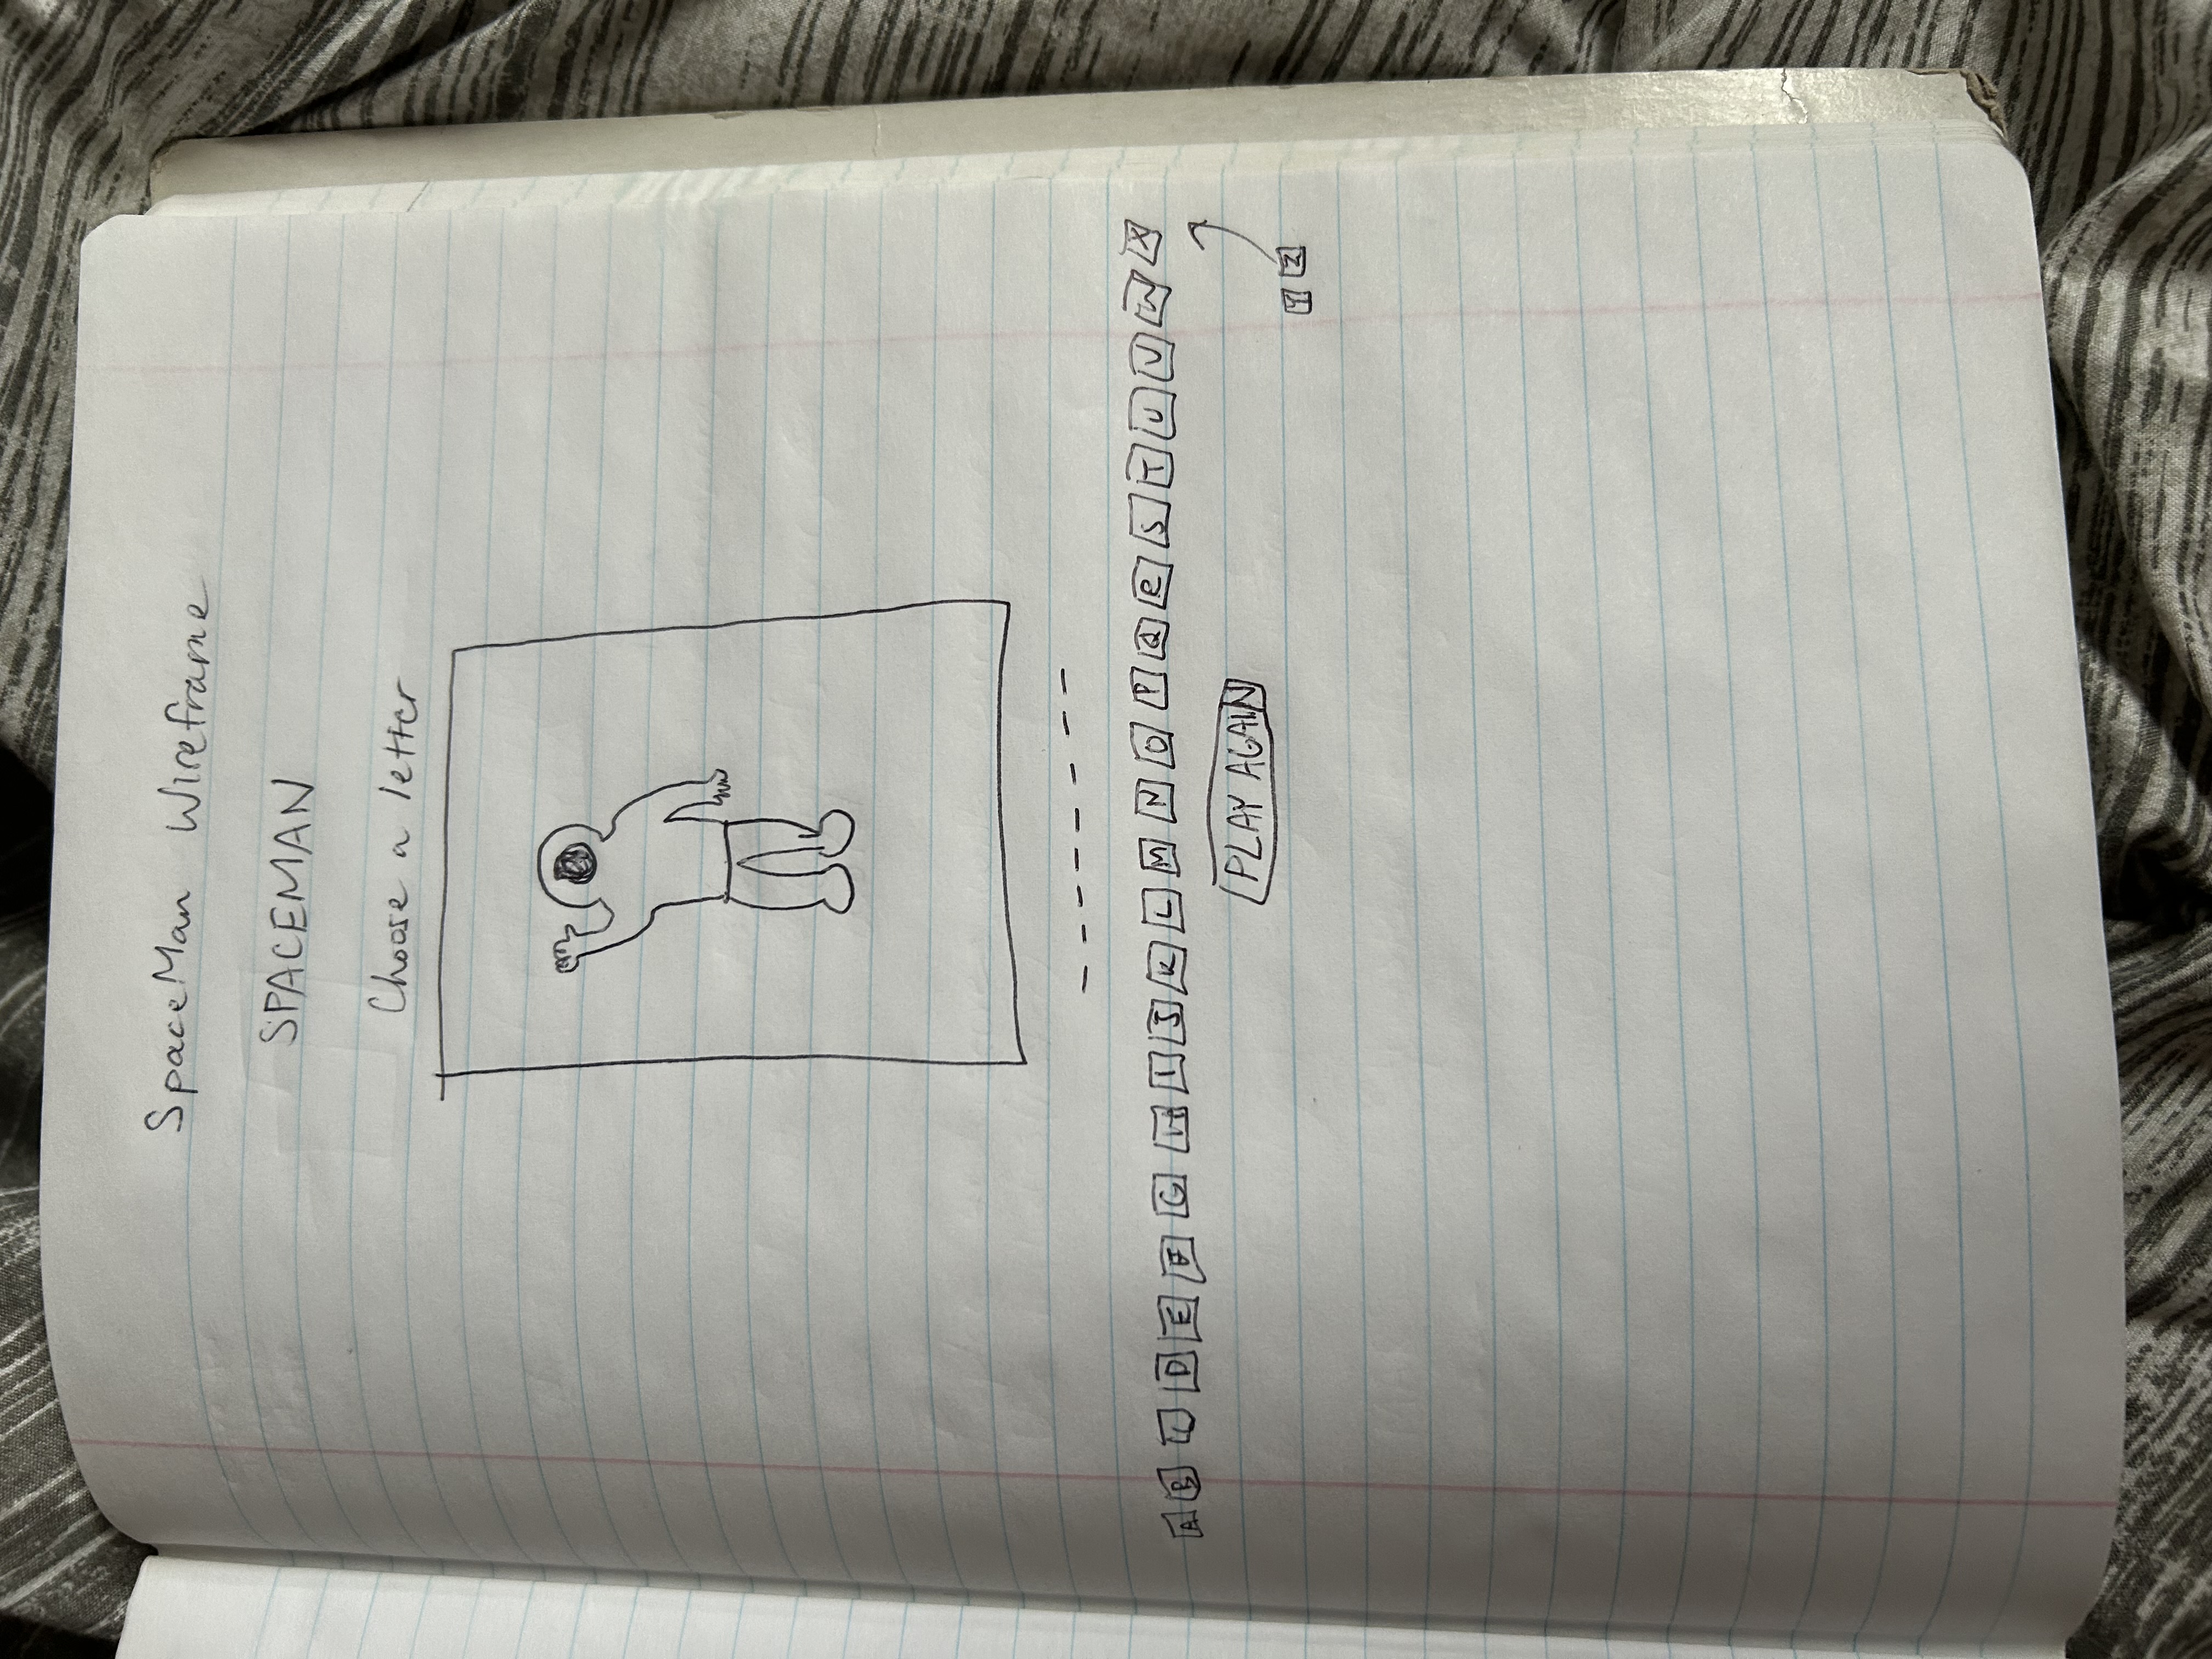 SpaceMan Wireframe
SPACEMAN
Choose a letter
A B C D E F G H I J K L M N O P Q R S T U V W X
PLAY AGAIN
Y Z